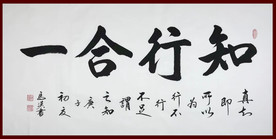 知行合一
真知
即
所以
為
行不
行
不足
謂
之知
庚
子
初夏
書